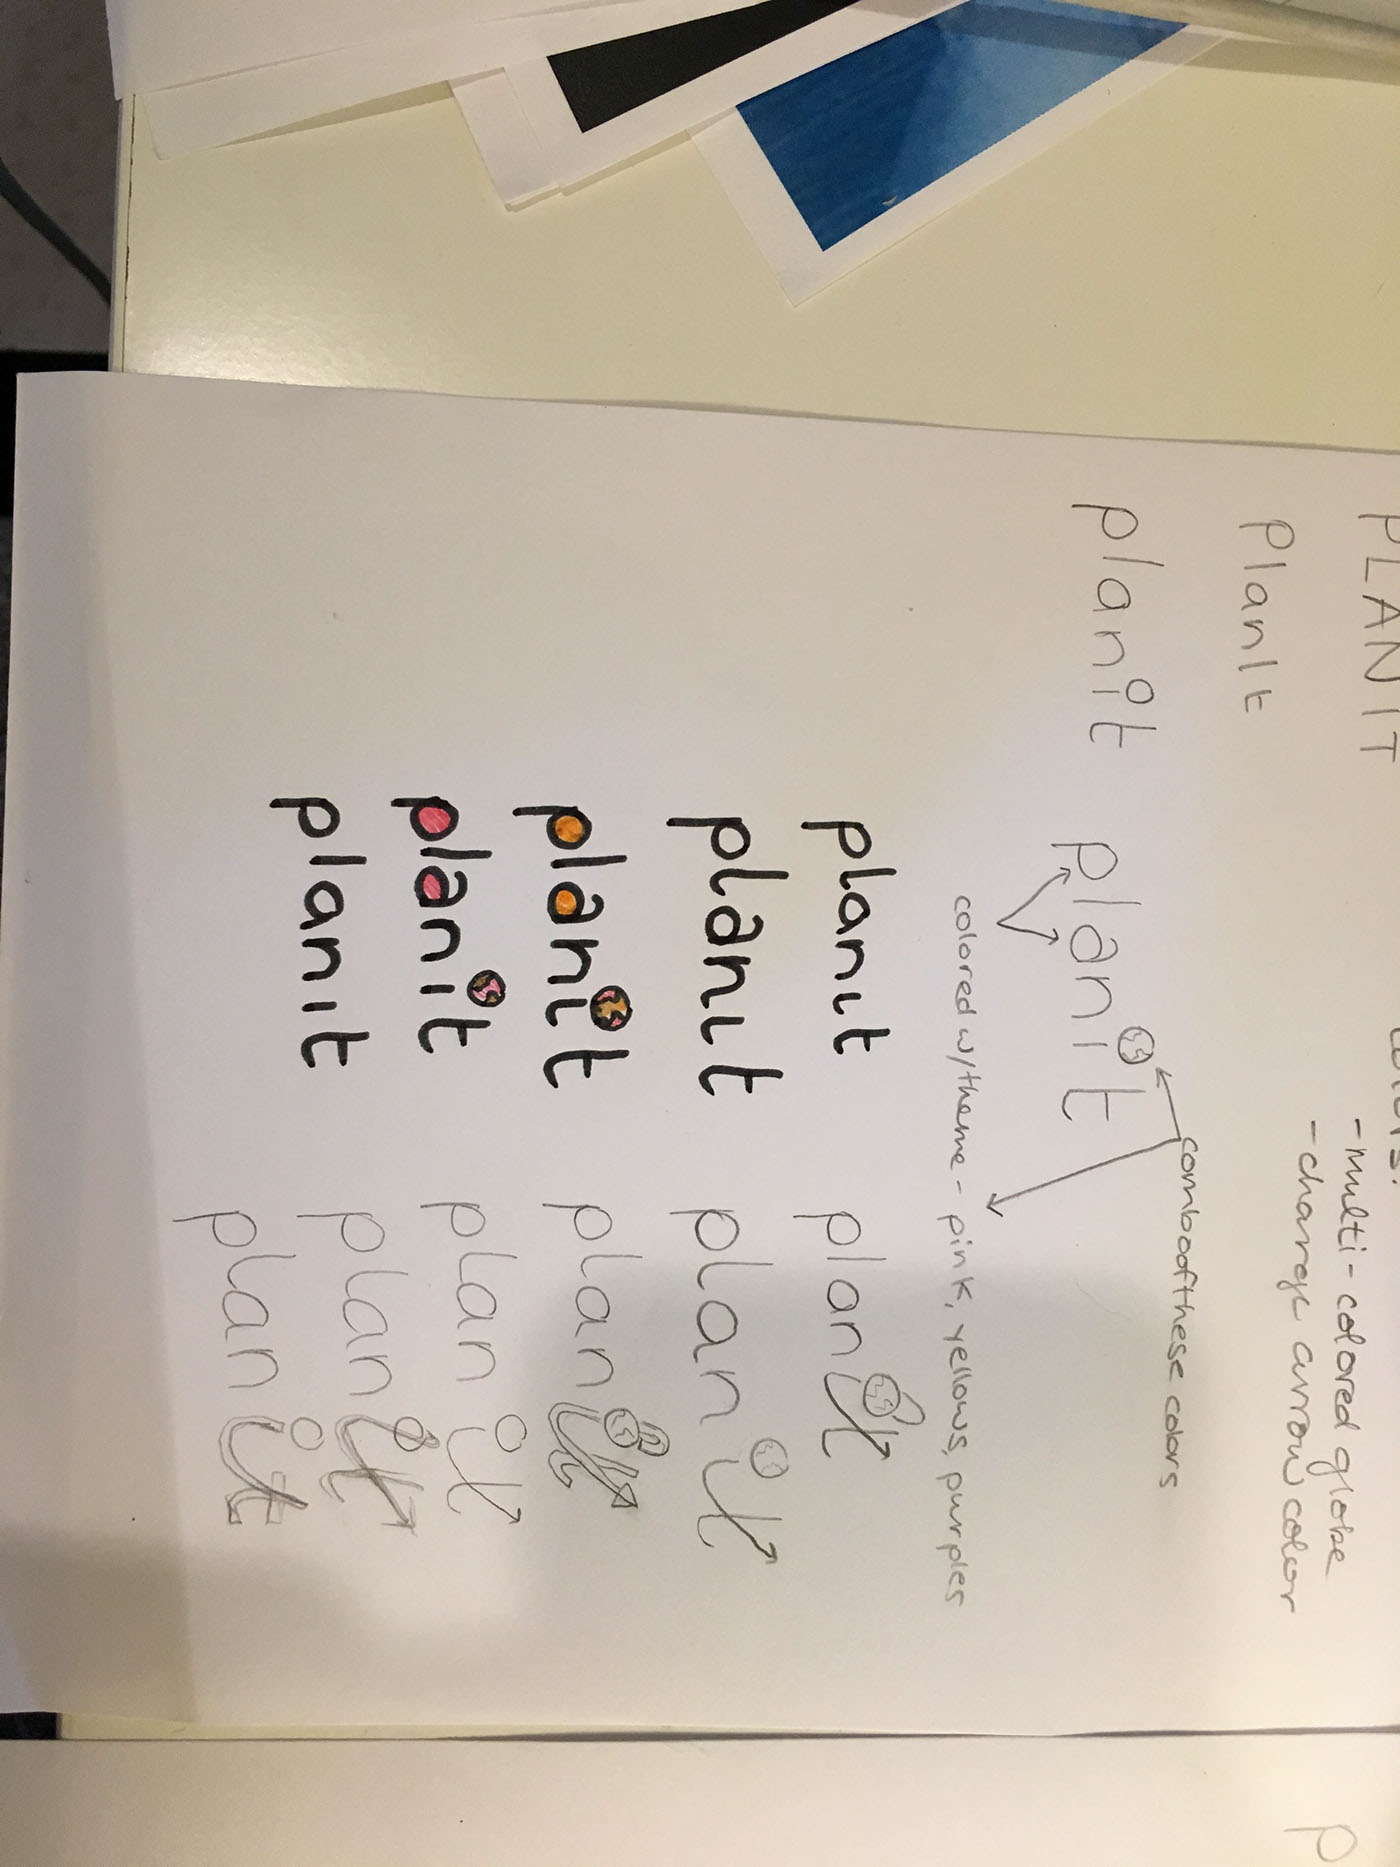 PLANIT
- multi-colored globe
- change arrow color
planIt
combo of these colors
planit planit
colored w/ theme - pink, yellows, purples
planıt planit
planıt planit
planit planit
planit planit
planıt planit
planit
p